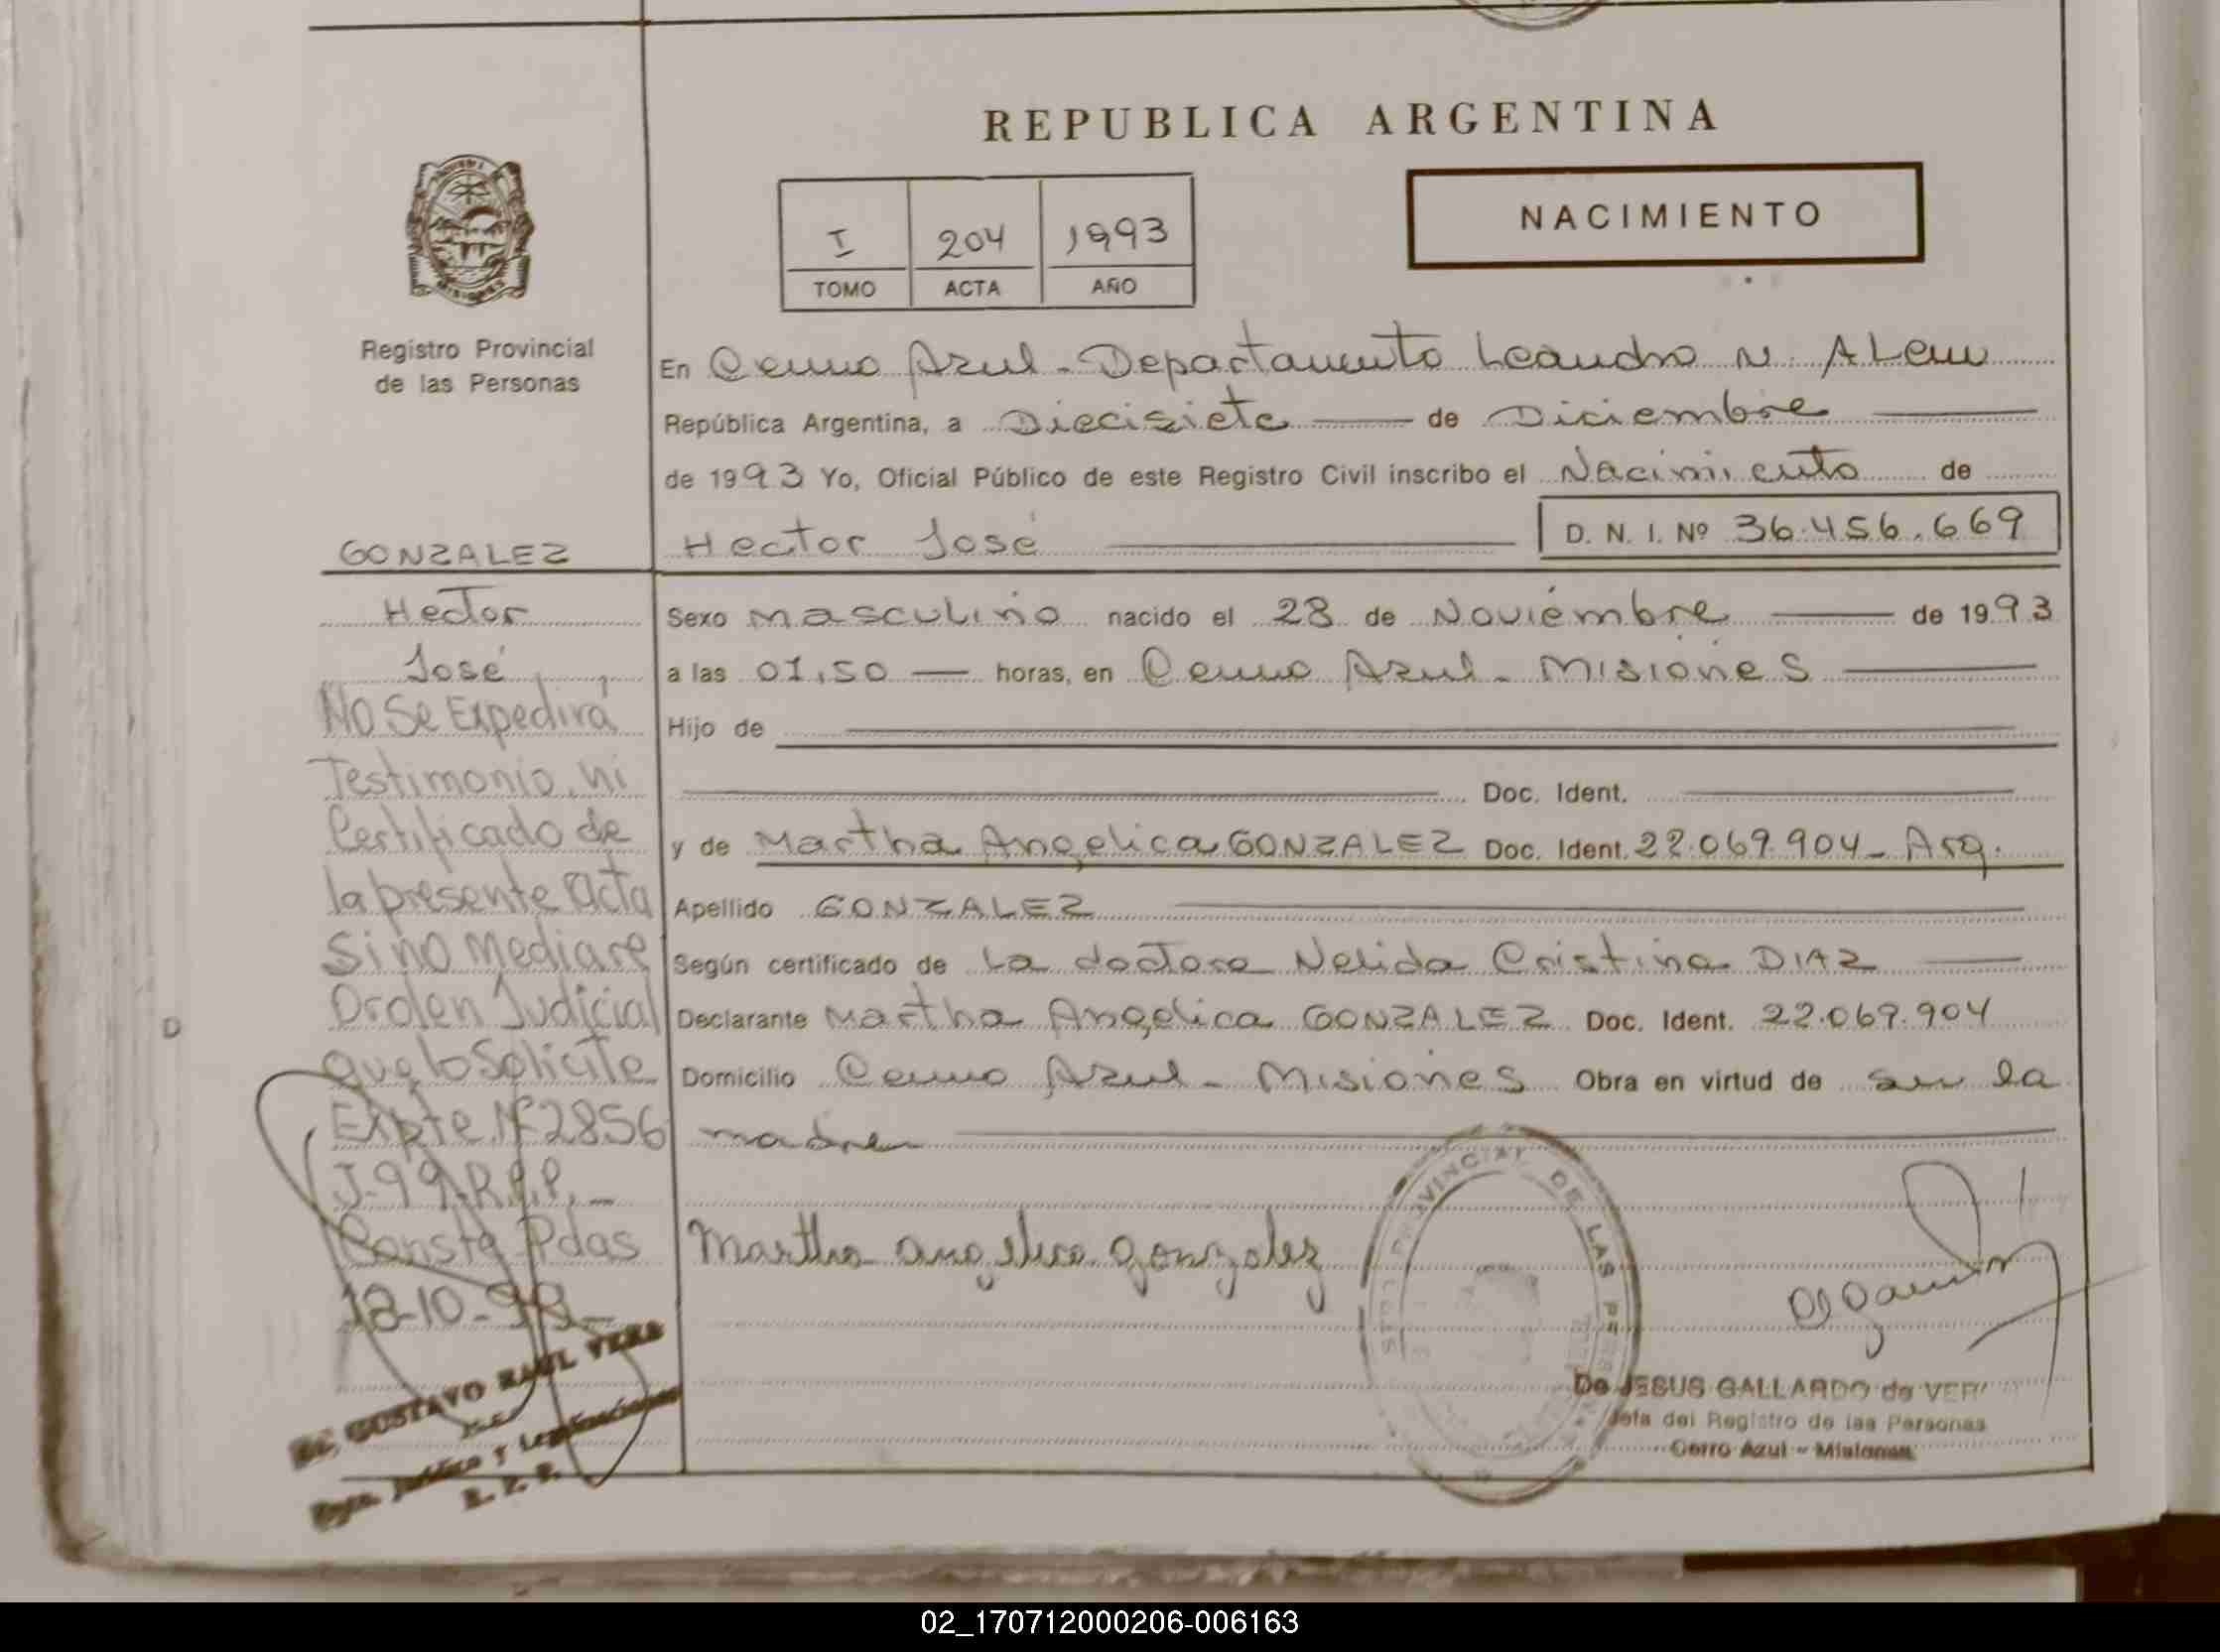 REPUBLICA ARGENTINA
I 204 1993
TOMO ACTA AÑO
NACIMIENTO
Registro Provincial
de las Personas
En Cerro Azul - Departamento Leandro N. ALem
República Argentina, a Diecisiete de Diciembre
de 1993 Yo, Oficial Público de este Registro Civil inscribo el Nacimiento de
Hector José D. N. I. Nº 36.456.669
Sexo masculino nacido el 28 de Noviembre de 1993
a las 01,50 horas, en Cerro Azul - Misiones
Hijo de
Doc. Ident.
y de Martha Angelica GONZALEZ Doc. Ident. 22.069.904 - Arg.
Apellido GONZALEZ
Según certificado de La doctora Nelida Cristina DIAZ
Declarante Martha Angelica GONZALEZ Doc. Ident. 22.069.904
Domicilio Cerro Azul - Misiones Obra en virtud de ser la
madre
Martha angelica gonzalez
PROVINCIAL DE LAS
De JESUS GALLARDO de VER
Jefa del Registro de las Personas
Cerro Azul - Misiones
GONZALEZ
Hector
José
No Se Expedirá
Testimonio, ni
Certificado de
la presente acta
Si no Mediare
Orden Judicial
que lo Solicite
Expte Nº 2856
J-99-R.P.P.
Conste Pdas
18-10-99
GUSTAVO RAUL VERA
R. P. P.
D
02_170712000206-006163